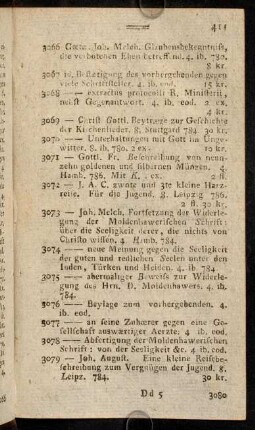 411
3066 Goeze Joh. Melch. Glaubensbekenntniſs,
die verbotenen Ehen betreffend. 4. ib. 780.
8 kr.
3067 id. Beſtätigung des vorhergehenden gegen
viele Schriftſteller. 4. ib. eod. 15 kr.
3068 — — extractus protocolli R. Miniſterii,
nebſt Gegenantwort. 4. ib. eod. 2 ex.
4 kr.
3069 — Chriſt Gottl. Beytræge zur Geſchichte
der Kirchenlieder. 8. Stuttgard 784. 30 kr.
3070 — — Unterhaltungen mit Gott im Unge-
witter. 8. ib. 780. 2 ex. 10 kr.
3071 — Gottl. Fr. Beſchreibung von neun-
zehn goldenen und ſilbernen Münzen. 4.
Hamb. 786. Mit K. ex. 2 fl.
3072 — J. A. C. zwote und 3te kleine Harz-
reiſe. Für die Jugend. 8. Leipzig 786.
2 fl. 30 kr.
3073 — Joh. Melch. Fortſetzung der Widerle-
gung der Moldenhaweriſchen Schrift:
über die Seeligkeit derer, die nichts von
Chriſto wiſſen. 4. Hamb. 784.
3074 — — neue Meinung gegen die Seeligkeit
der guten und redlichen Seelen unter den
Iuden, Türken und Heiden. 4. ib. 784.
3075 — — abermaliger Beweis zur Widerle-
gung des Hrn. D. Moldenhawers. 4. ib.
784.
3076 — — Beylage zum vorhergehenden. 4.
ib. eod.
3077 — — an ſeine Zuhœrer gegen eine Ge-
ſellſchaft auswærtiger Aerzte. 4. ib. eod.
3078 — — Abfertigung der Moldenhaweriſchen
Schrift: von der Seeligkeit &c. 4. ib. eod.
3079 — Joh. Auguſt. Eine kleine Reiſebe-
ſchreibung zum Vergnügen der Jugend. 8.
Leipz. 784. 30 kr.
Dd 5 3080